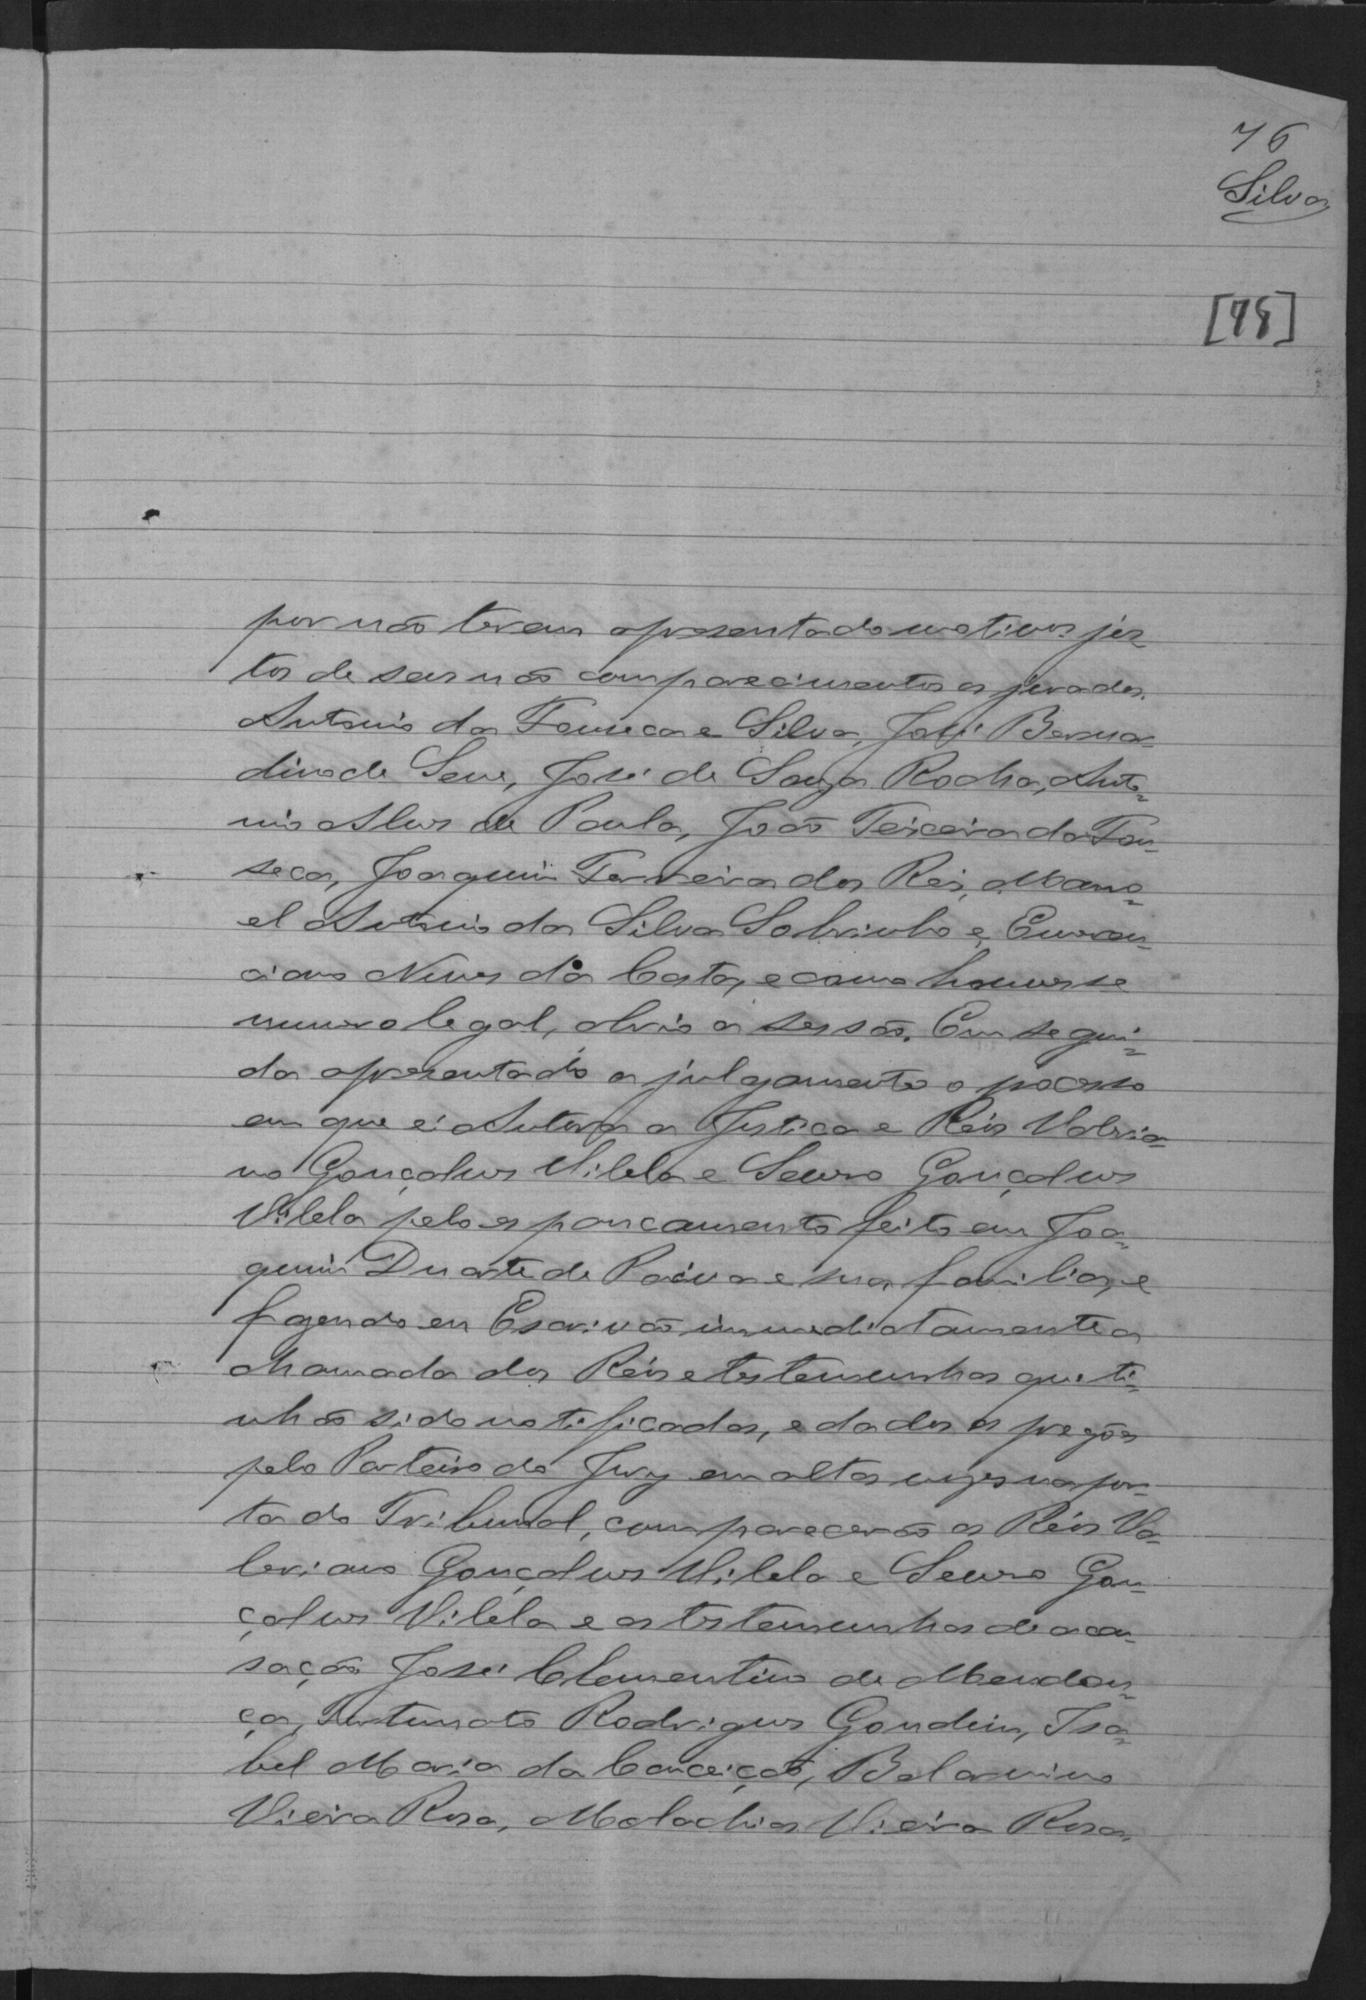 76
Silva
[78]
por não terem apresentado motivos jus=
tos de seus não comparecimentos os jurados.
Antonio da Fonseca e Silva, José Bernar=
dino de Sene, José de Souza Rocha, Anto=
nio Alves de Paula, João Teixeira da Fon=
seca, Joaquim Ferreira dos Reis, Mano=
el Antonio da Silva Sobrinho e
Neves da Costa, e como houvesse
numero legal, abrio a sessão. Em segui=
da apresentado a julgamento o processo
em que é Autora a Justiça e Réis Valeria=
no Gonçalves Vilela e Gonçalves
Vilela pelo espancamento feito em Joa=
quim Duarte de Paiva e sua familia, e
fazendo eu Escrivão immediatamente a
chamada dos Réis e testemunhas que ti=
nhão sido notificadas, e dados os pregões
pelo Porteiro do Jury em altas vozes na por=
ta do Tribunal, comparecerão os Réis Va=
leriano Gonçalves Vilela e Gon=
çalves Vilela e as testemunhas de accu=
sação José Clementino de Mendon=
ça, Fortunato Rodrigues Gondim, Isa=
bel Maria da Conceição, Belarmino
Vieira Rosa, Malachias Vieira Rosa,